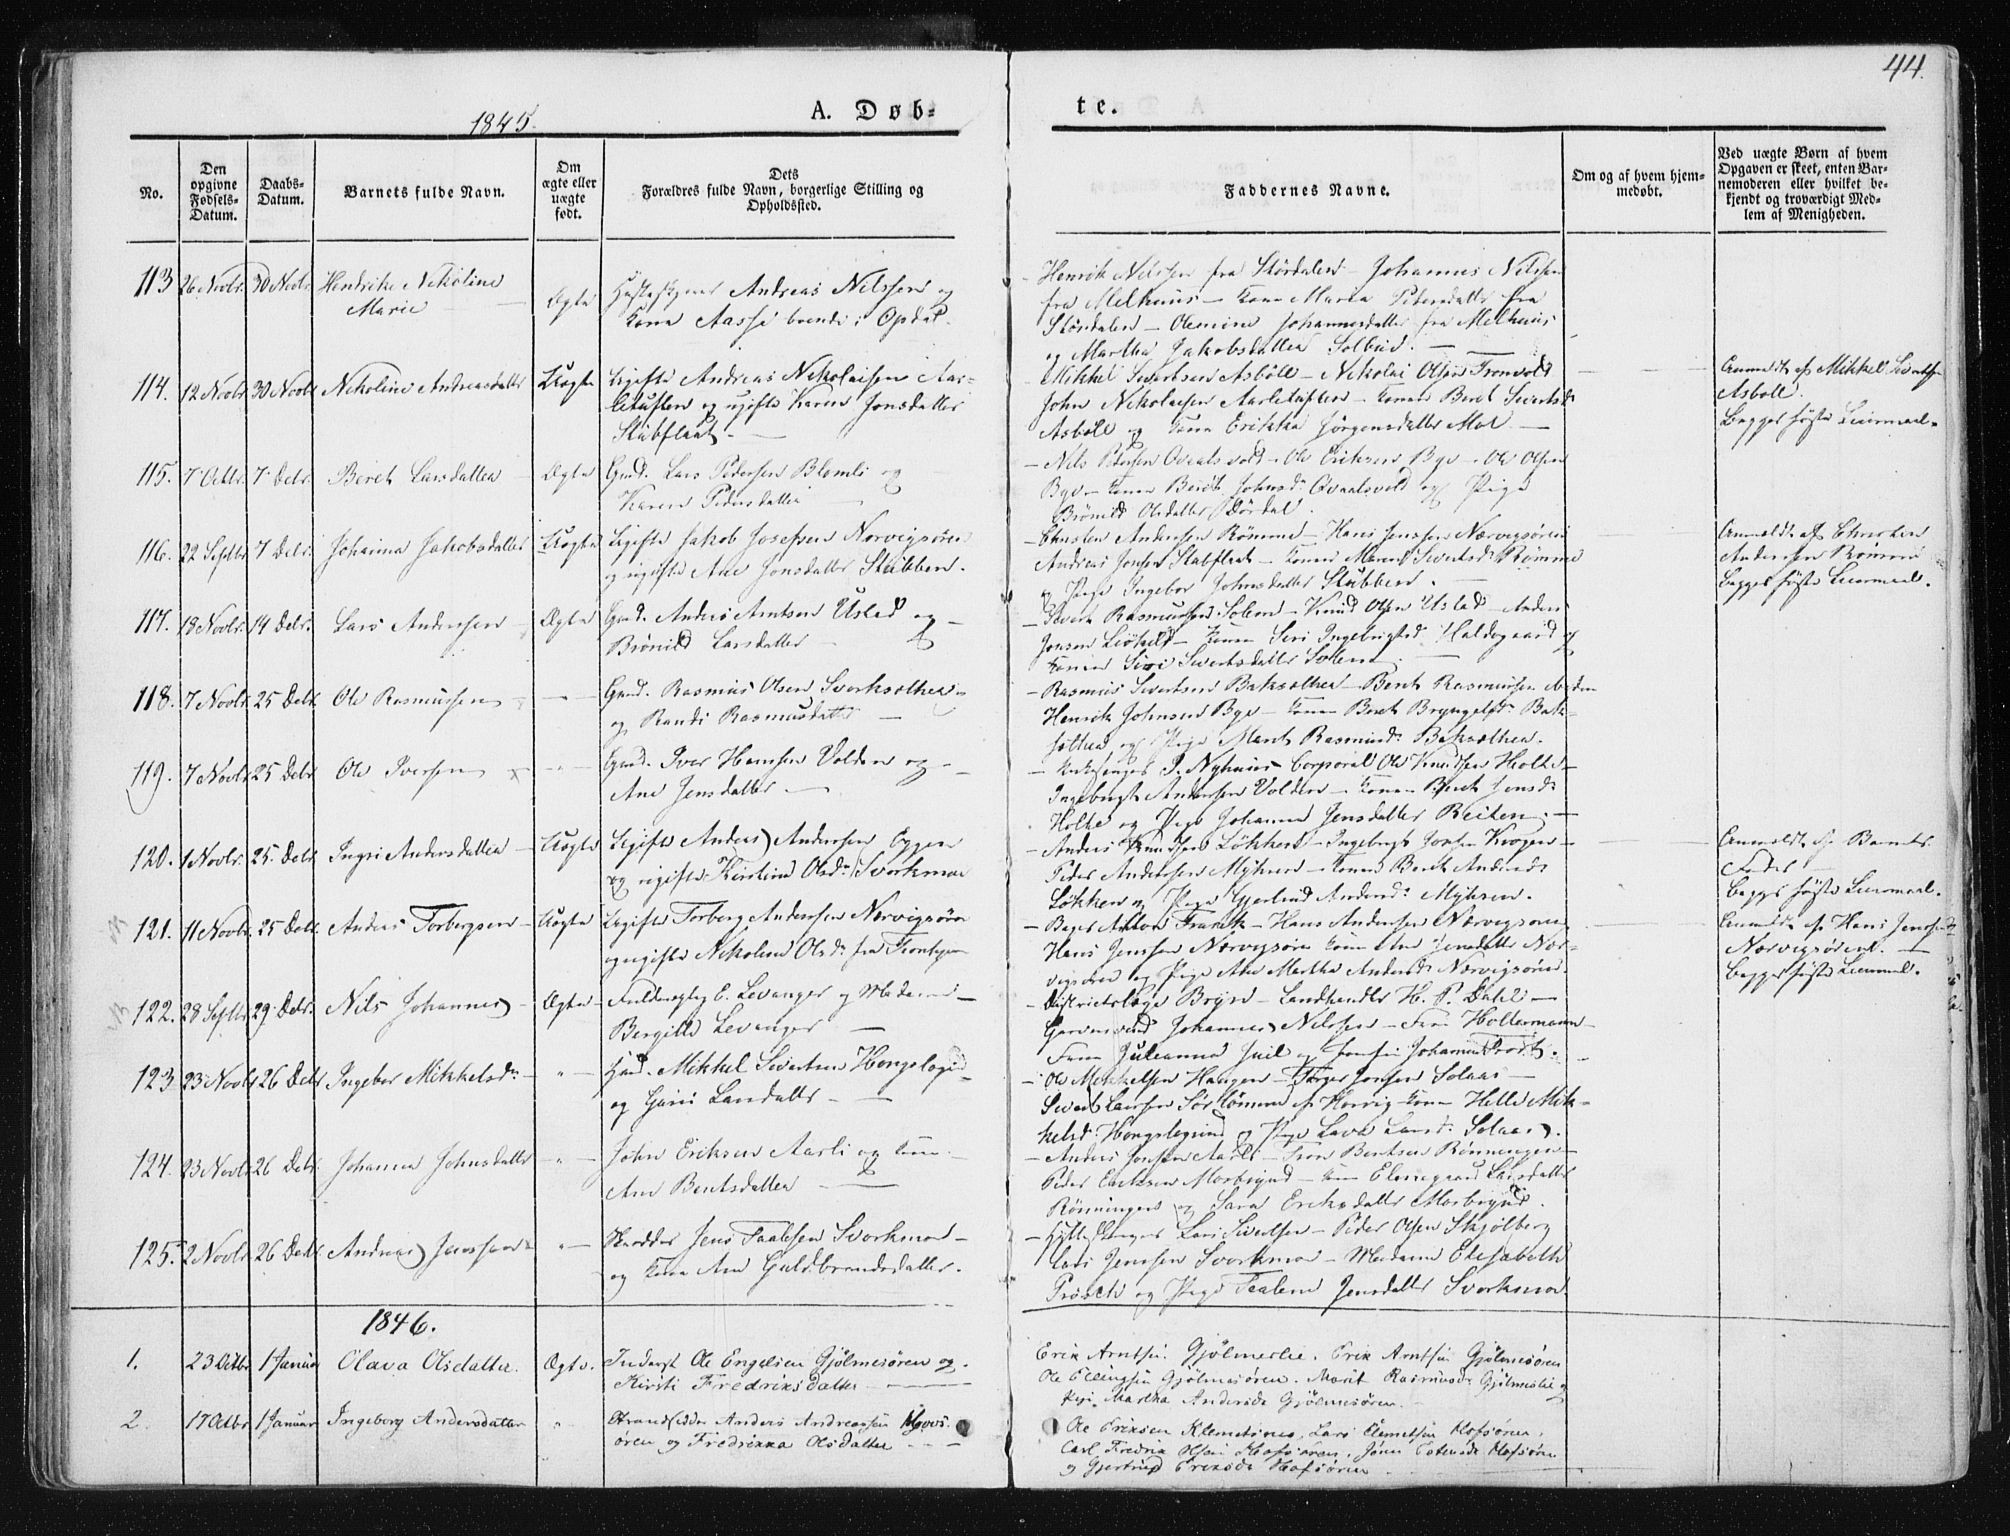 44.
1845.
A. Døb-
te.
No.
Den opgivne Fødsels-Datum.
Daabs-Datum.
Barnets fulde Navn.
Om ægte eller uægte født.
Dets Forældres fulde Navn, borgerlige Stilling og Opholdssted.
Faddernes Navne.
Om og af hvem hjem-medøbt.
Ved uægte Børn af hvem Opgaven er skeet, enten Bar-nemoderen eller hvilket be-kjendt og troværdigt Med-lem af Menigheden.
113 26 Novbr. 30 Novbr. Hendrike Nikoline
Marie
Ægte
Andreas Nilssen og
Kone Aasse boende i Opdal.
Henrik Nilssen fra Stördalen - Johannes Nilssen
fra Melhuus - Kone Maria Pedersdatter fra
Stördalen - Olemine Johannesdatter fra Melhuus
og Martha Jakobsdatter Solbu.
114. 12 Novbr 30 Novbr Nikoline Andreasdatter Uægte
Ugifte Andreas Nikolaisen Aar-
letuften og ugifte Karen Jonsdatter
Stubflaat.
Mikkel Sivertsen Asböll - Nikolai Olsen Tronvold
John Nikolaisen Aarletuften - Kone Beret Sivertsd.
Asböll og Kone Erikka Jörgensdatter Moe
Anmeldt af Mikkel Sivertsen
Asböll.
Begges förste Leiermaal.
115. 7 Octbr. 7 Debr. Beret Larsdatter Ægte
Gmd. Lars Pedersen Blomli og
Karen Pedersdatter
Nils Pedersen Qvaalsvold - Ole Eriksen Bye - Ole Olsen
Bye - Kone Berit Johnsd. Qvaalsvold og Pige
Brönild Olsdatter Dördal.
116. 22 Septbr. 7 Debr. Johanna Jakobsdatter Uægte
Ugifte Jakob Josefsen Norvigsören
og ugifte Ane Jonsdatter Stubben.
Christen Andersen Römme - Hans Jenssen Nærvigsören
Andreas Jonsen Stubflaat - Kone Maren Sivertsd. Römme
og Pige Ingebor Johnsdatter Stubben.
Anmeldt af Christen
Andersen Römme
Begges förste Leiermaal.
117. 18 Novbr. 14 Debr. Lars Andersen Ægte
Gmd. Anders Arntsen Ustad og
Brönild Larsdatter
Sivert Rasmussen Solem - Knud Olsen Ustad - Anders
Jonsen - Kone Siri Ingebrigtsd. Haldogaard og
Kone Siri Sivertsdatter Solem
118. 7 Novbr. 25 Debr. Ole Rasmussen
Gmd. Rasmus Olsen Svorksæther
og Randi Rasmusdatter
Rasmus Sivertsen Baksæther - Berit Rasmussen
Henrik Johnsen Bye - Kone Beret Bryngelsd. Bak-
sæther og Pige Marit Rasmusd. Baksæther.
119. 7 Novbr. 25 Debr. Ole Iversen
Gmd. Iver Hansen Volden og
Ane Jensdatter
P. Nyhuus - Corporal Ole Knudsen Holte
Ingebrigt Andersen Volden - Kone Berit Jonsd.
Holte og Pige Johanna Jensdatter Reiten.
120. 1 Novbr. 25. Debr. Ingri Andersdatter Uægte
Ugifte Anders Andersen Eggen
og ugifte Kirstine Olsd. Svorkmoe
Anders Knudsen Løkken - Ingebrigt Jonsen Krogen
Peder Andersen Myhren - Kone Berit Andersd.
Løkken og Pige Gjerlaud Andersd. Myhren.
Anmeldt af Barnets
Fader
Begges förste Leiermaal.
121. 11 Novbr. 25 Debr. Anders Torbergsen Uægte
Ugifte Torberg Andersen Nærvigsören
og ugifte Nikoline Olsd. fra Trondhjem
Bager Anton Franck - Hans Andersen Nærvigsören
Hans Jenssen Nærvigsören Kone Ane Jensdatter Nær-
vigsören og Pige Ane Martha Andersd. Nærvigsören.
Anmeldt af Hans Jenssen
Norvigsören.
Begges förste Leiermaal.
122. 28 Septbr. 29 Debr. Nils Johannes Ægte
Fuldmægtig E. Levanger og Madame
Bergitte Levanger
Districtslæge Bryn - Landhandler H. P. Dahl
Johannes Nilssen - Frue Holtermann
Frue Julianne Juil og Jomfru Johanne Prost.
123 23 Novbr 26 Debr Ingebor Mikkelsd.
Hmd. Mikkel Sivertsen Hongslogn.
og Guri Larsdatter
Ole Mikkelsen Haugen - Torger Jonsen Solaas
Sivert Larssen Sør - Kone Helle Mik-
kelsd. Hongslognd. og Pige Lava Larsd. Solaas.
124. 23 Novbr 26 Debr. Johanna Johnsdatter
John Eriksen Aarli og Kone
Ane Bentsdatter
Anders Jonsen Aarli - Tron Bentsen Rönningen
Peder Eriksen Morbygd - Kone Elen Larsdatter
Rönningen og Sara Eriksdatter Morbygd.
125. 2 Novbr. 26 Debr. Andreas Jenssen
Skrædder Jens Taalesen Svorkmoe
og Kone Ane Guldbrandsdatter.
Lars Sivertsen - Peder Olsen Skjölberg
Lars Jenssen Svorkmoe - Madame Elisabeth
Prösch og Pige Taalene Jensdatter Svorkmoe.
1846.
1. 23 Octbr 1 Januar Olava Olsdatter. Ægte.
Inderst Ole Engelsen Gjölmesören og
Kirsti Fredriksdatter
Erik Arntsen Gjölmeslie. Erik Arntsen Gjölmesören
Ole Ellingsen Gjölmesören. Marit Rasmusd. Gjölmeslie og
Pige Martha Andersd. Gjölmesören.
2. 17 Octbr 1 Januar Ingeborg Andersdatter
Strandsidder Anders Andreassen Hovs-
ören og Fredrikka Olsdatter
Ole Eriksen Klemetsmo, Lars Klemetsen Hofsören,
Carl Fredrik Olsen Hofsören, Jören Petersd. Hofsören
og Gjertrud Eriksd. Hofsören